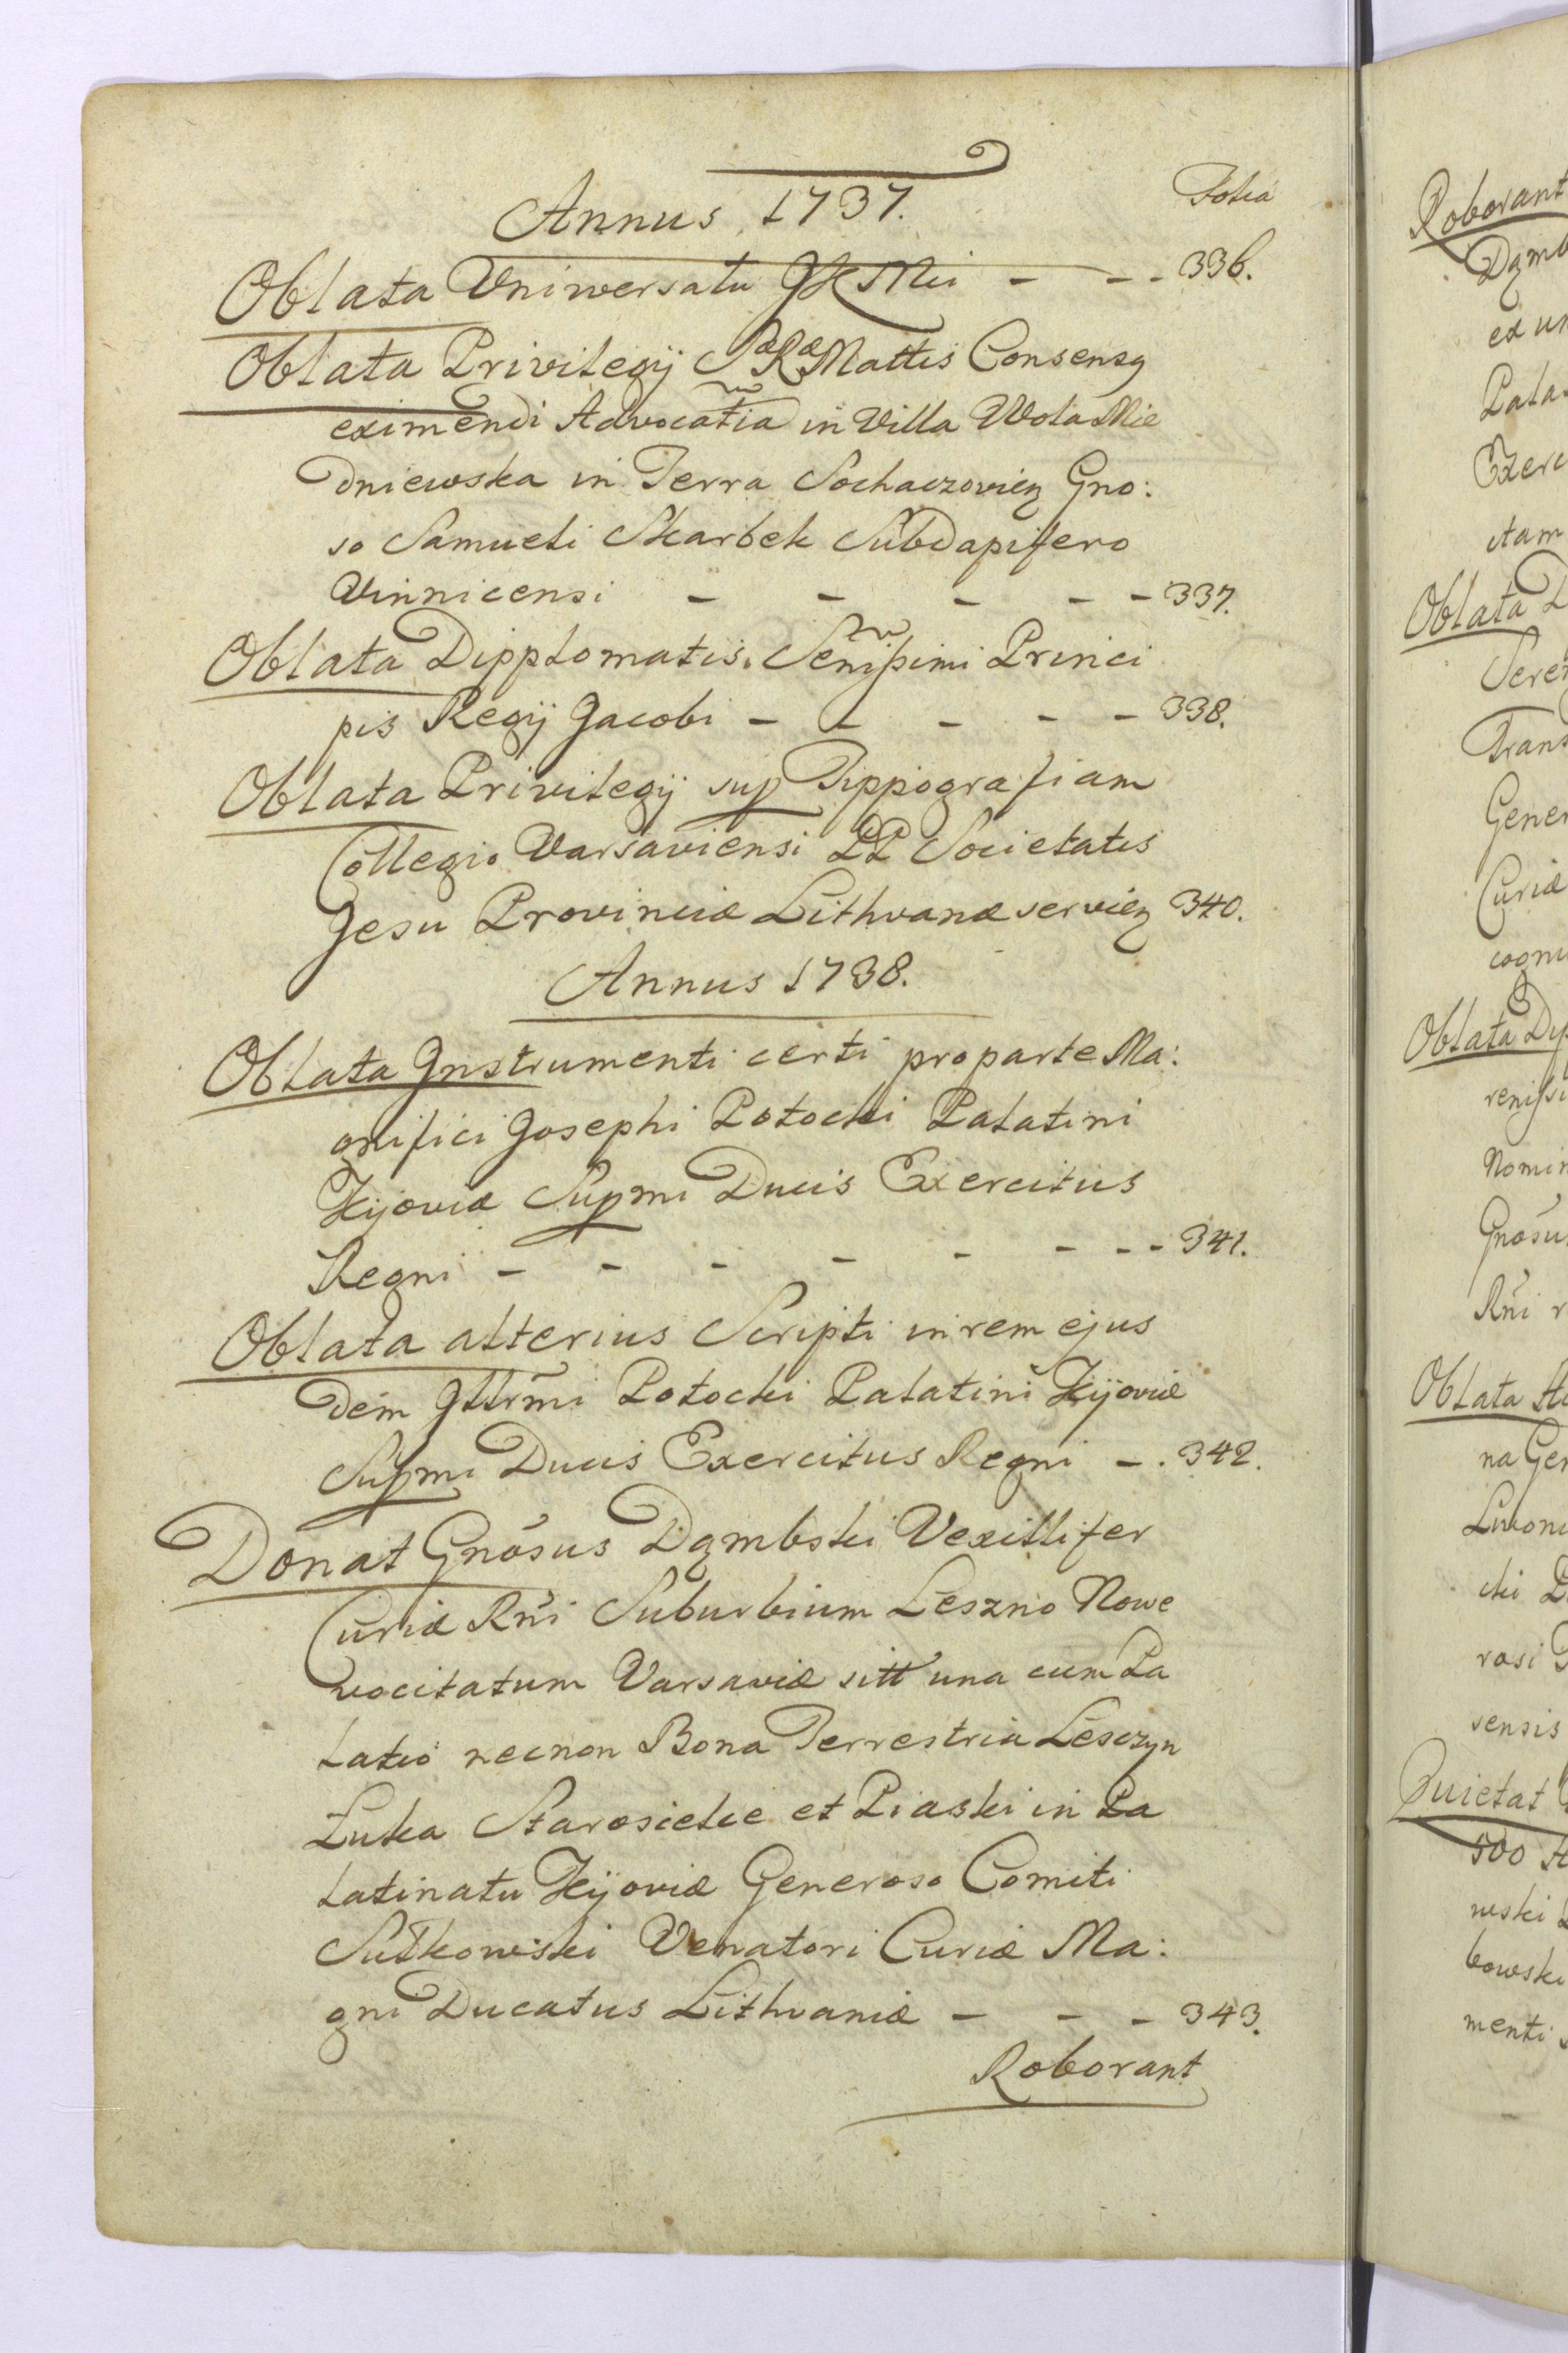 Folia
Annus 1737.
Oblata Vniwersału JK Mci - - - 336.
Oblata Privilegij SæRæ Mattis Consensq
eximendi Advocatia in Villa Wola Mie
dniewska in Terra Sochaczovien Gno:
so Samueli Skarbek Subdapifero
Vinnicensi - - - - - 337.
Oblata Dipplomatis Senissimi Princi
pis Regij Jacobi - - - - - 338.
Oblata Privilegij sup Tippografiam
Collegio Varsaviensi PP Societatis
Jesu Provinciæ Lithvanæ servien 340.
Annus 1738.
Oblata Instrumenti certi pro parte Ma:
gnifici Josephi Potocki Palatini
Kijoviæ Supmi Ducis Exercitus
Regni - - - - - - - - 341.
Oblata alterius Scripti in rem ejus
dem Illrmi Potocki Palatini Kijoviæ
Supmi Ducis Exercitus Regni - . 342.
Donat Gnosus Dąmbski Vexillifer
Curiæ Rni Suburbium Leszno Nowe
vocitatum Varsaviæ sitt una cum Pa
latio necnon Bona Terrestria Lesczyn
Łuka Starosielce et Piaski in Pa
latinatu Kijoviæ Generoso Comiti
Sułkowski Venatori Curiæ Ma:
gni Ducatus Lithvaniæ - - - 343.
Roborant
Roborant
Dąmb
ex
Pala
Exerc
Oblata D
Seren
Trans
Gener
Curiæ
cogn
Oblata Dip
renissi
Nomin
Gnosu
Rni
Oblata
na Gen
cki
rosi
sensis
Quietat
500
wski
bowski
menti